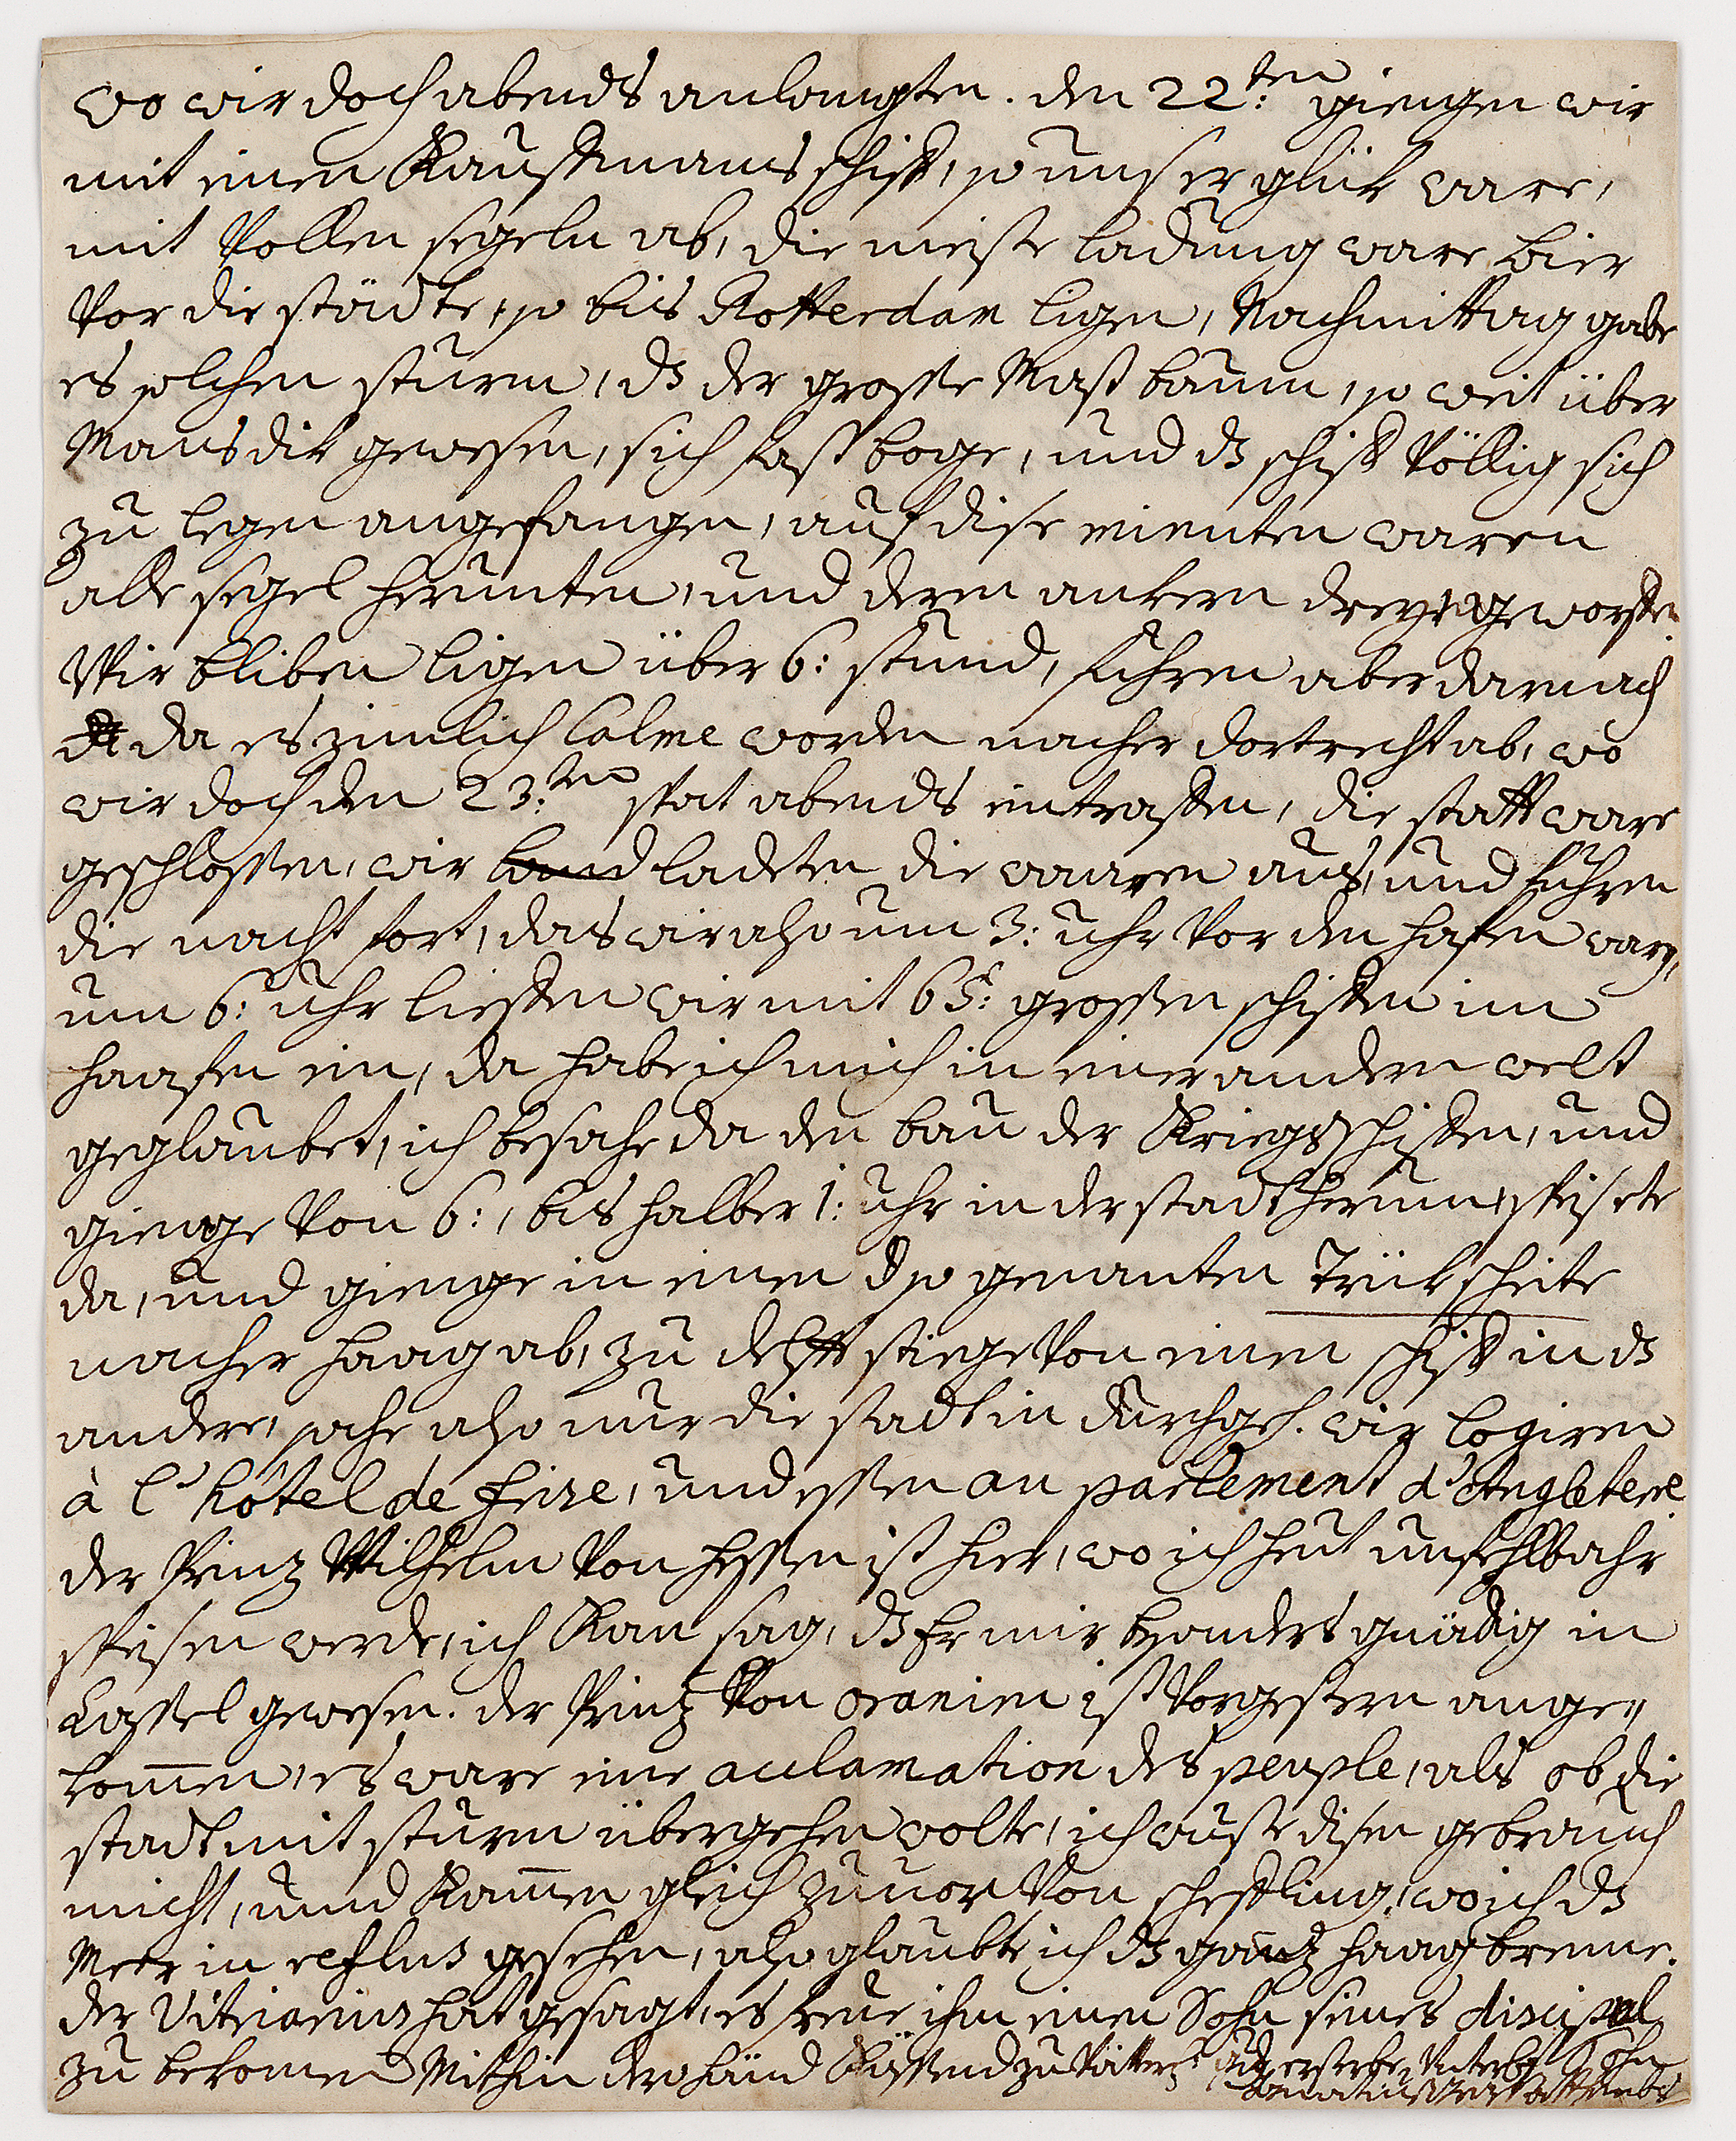 wo wir doch abends anlangten. den 22:ten giengen wir
mit einen Kauffmans schiff, so unser glük ware,
mit vollen segeln ab, die meiste ladung ware bier
vor die städte, so bis Rotterdam ligen, Nachmittag gabe
es solchen sturm, dz der grosse Mastbaum, so weit über
Mansdik gewesen, sich fast boge, und dz schiff völlig sich
zu legen angefangen, auf dise minuten waren
alle segel herunten, und deren ankern drey geworffen.
Wir bliben ligen über 6: stund, fuhren aber darnach
da es zimlich calme worden nacher dortrecht ab, wo
wir doch den 23:ten spat abends eintraffen, die statt ware
geschlossen, wir land ladeten die waaren aus, und fuhren
die nacht fort, das wir also um 3: uhr vor den hafen waren,
um 6: uhr lieffen wir mit 65: grossen schiffen im
haafen ein, da habe ich mich in einer andern welt
geglaubet, ich besahe da den bau der Kriegsschiffen, und
gienge von 6:, bis halber 1: uhr in der stadt herum, speisete
da, und gienge in einen so genanten Trükscheite
nacher haag ab, zu delfft stiege von einen schiff in dz
andere, sahe also nur die stadt in durchgeh. wir logiren
à l'hôtel de frise, und essen au parlement d'Angletere
der Prinz Wilhelm von hessen ist hier, wo ich heut unfehlbahr
speisen werde, ich Kan sag, dz Er mir besonders gnädig in
Cassel gewesen. der Prinz von oranien ist vorgestern ange„
kom̄en, es ware eine acclamation des peuple, als ob die
stadt mit sturm übergehen wolte, ich wuste disen gebrauch
nicht, und Kam̄en gleich zuvor von schefling, wo ich dz
Meer in reflus gesehen, also glaubte ich dz gantz haag brenne.
der Vitriarius hat gesagt, es freue ihm einen Sohn seines discipul
zu bekomen Mithin dero händ Küssend zu